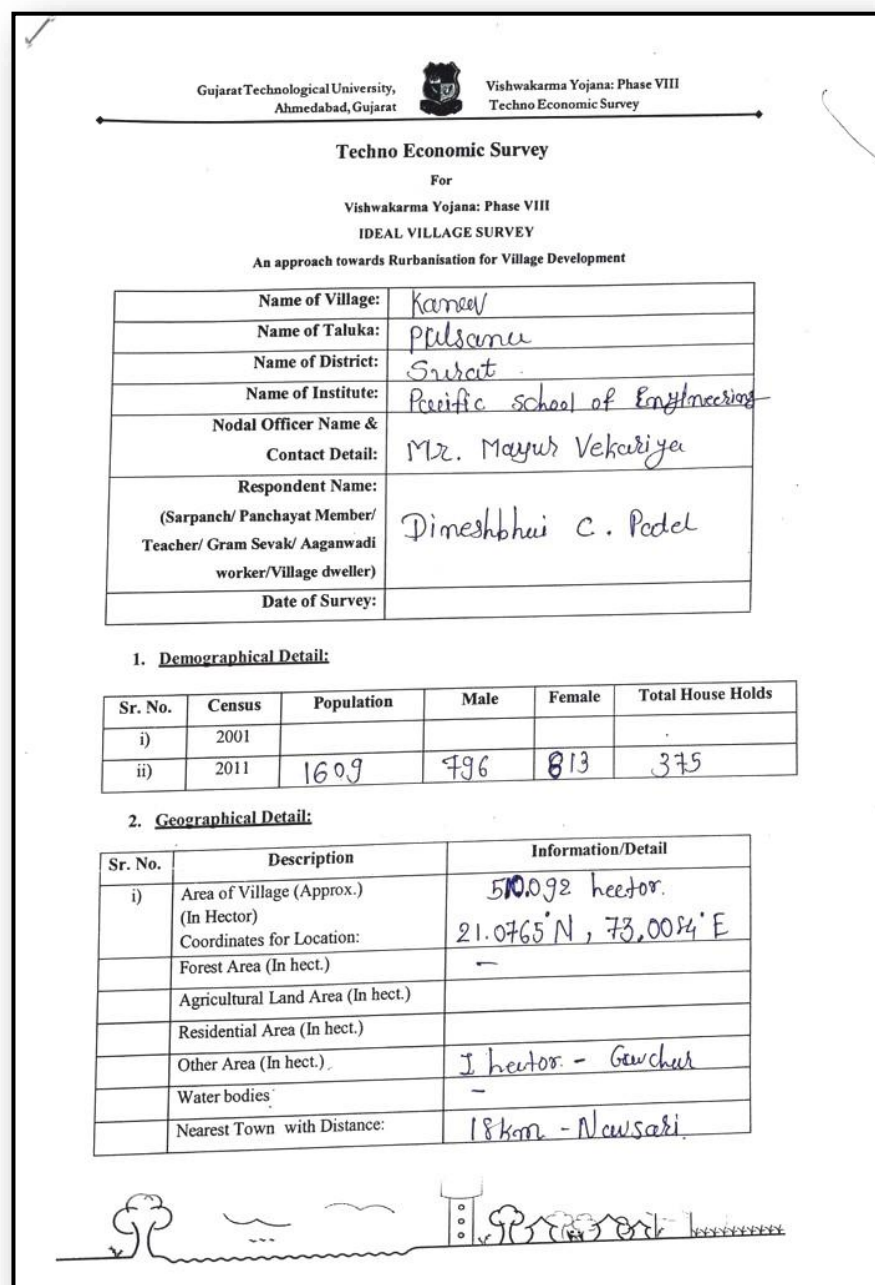 Gujarat Technological University,
Ahmedabad, Gujarat
Vishwakarma Yojana: Phase VIII
Techno Economic Survey
Techno Economic Survey
For
Vishwakarma Yojana: Phase VIII
IDEAL VILLAGE SURVEY
An approach towards Rurbanisation for Village Development
Name of Village: Kaneev
Name of Taluka: Palsana
Name of District: Surat
Name of Institute: Pacific school of Engineering
Nodal Officer Name &
Contact Detail: Mr. Mayur Vekariya
Respondent Name:
(Sarpanch/ Panchayat Member/
Teacher/ Gram Sevak/ Aaganwadi
worker/Village dweller)
Dineshbhai C. Patel
Date of Survey:
1. Demographical Detail:
Sr. No. Census Population Male Female Total House Holds
i) 2001
ii) 2011 1609 796 813 375
2. Geographical Detail:
Sr. No. Description Information/Detail
i) Area of Village (Approx.) 510.092 hector.
(In Hector)
Coordinates for Location: 21.0765°N, 73.0054°E
Forest Area (In hect.) -
Agricultural Land Area (In hect.)
Residential Area (In hect.)
Other Area (In hect.) 1 hector. - Gauchar
Water bodies -
Nearest Town with Distance: 18km - Navsari